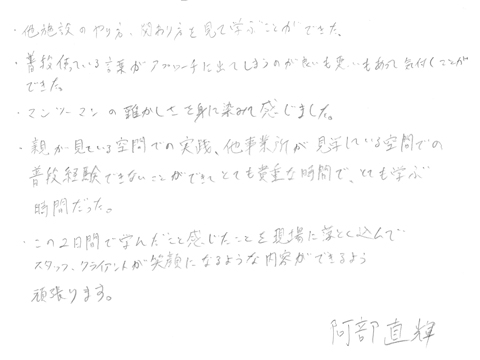 ・他施設のやり方、関わり方を見て学ぶことができた。
・普段使っている言葉がアプローチに出てしまうのが良いも悪いもあって気付くことが
できた。
・マンツーマンの難かしさを身に染みて感じました。
・親が見ている空間での実践、他事業所が見学している空間での
普段経験できないことができてとても貴重な時間で、とても学ぶ
時間だった。
・この2日間で学んだこと感じたことを現場に落とし込んで
スタッフ、クライアントが笑顔になるような内容ができるよう
頑張ります。
阿部直輝